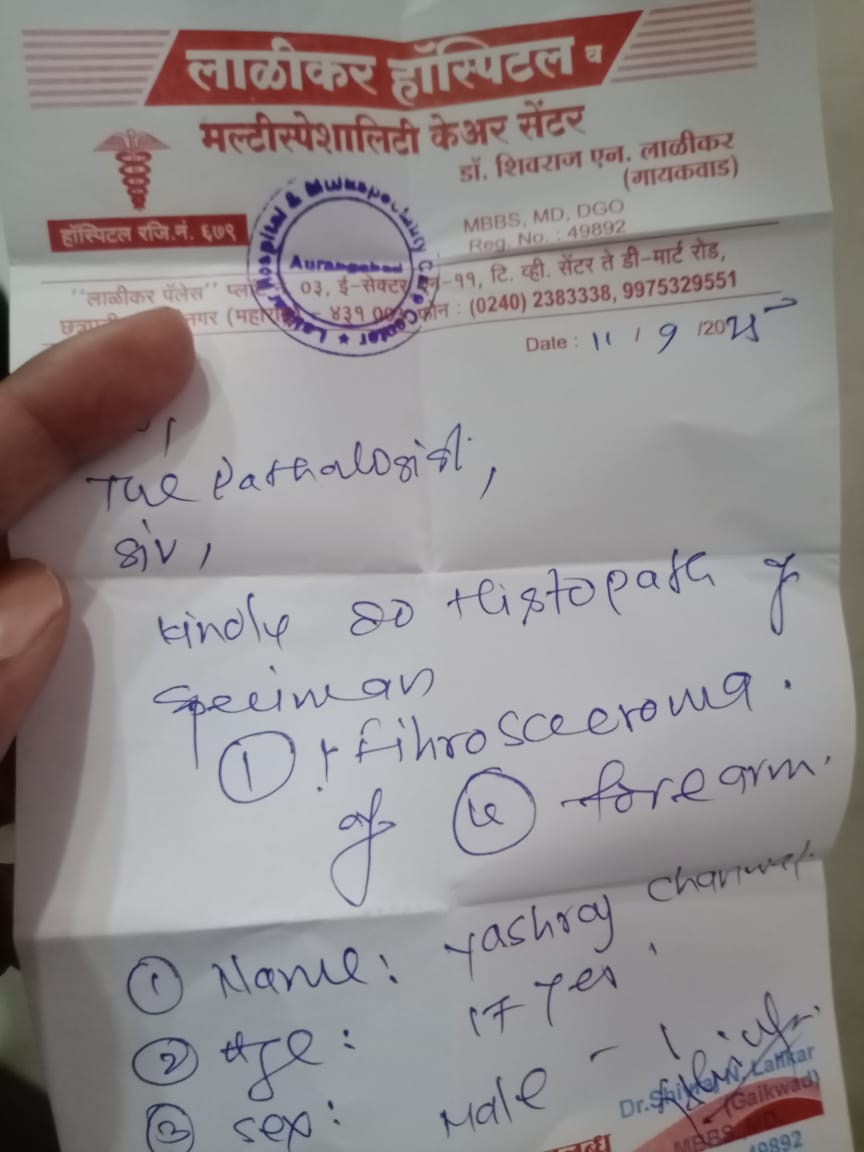 लाळीकर हॉस्पिटल व
मल्टीस्पेशालिटी केअर सेंटर
डॉ. शिवराज एन. लाळीकर
(गायकवाड)
हॉस्पिटल रजि.नं. ६७९
MBBS, MD, DGO
Reg. No. : 49892
Hospital & Multispeciality Care Center
Aurangabad
"लाळीकर पॅलेस" ०३, ई-सेक्टर, एन-११, टि. व्ही. सेंटर ते डी-मार्ट रोड,
४३१ फोन : (0240) 2383338, 9975329551
Date : 11 / 9 /2025
The Pathalosist,
Sir,
Kindly do Histopath of
Speciman
① ? fibrosceeroma.
of forearm.
① Name: Yashraj
② Age: 17 Yes.
③ Sex: Male -
Dr. Shivraj N. Lalikar
(Gaikwad)
MBBS, MD
49892